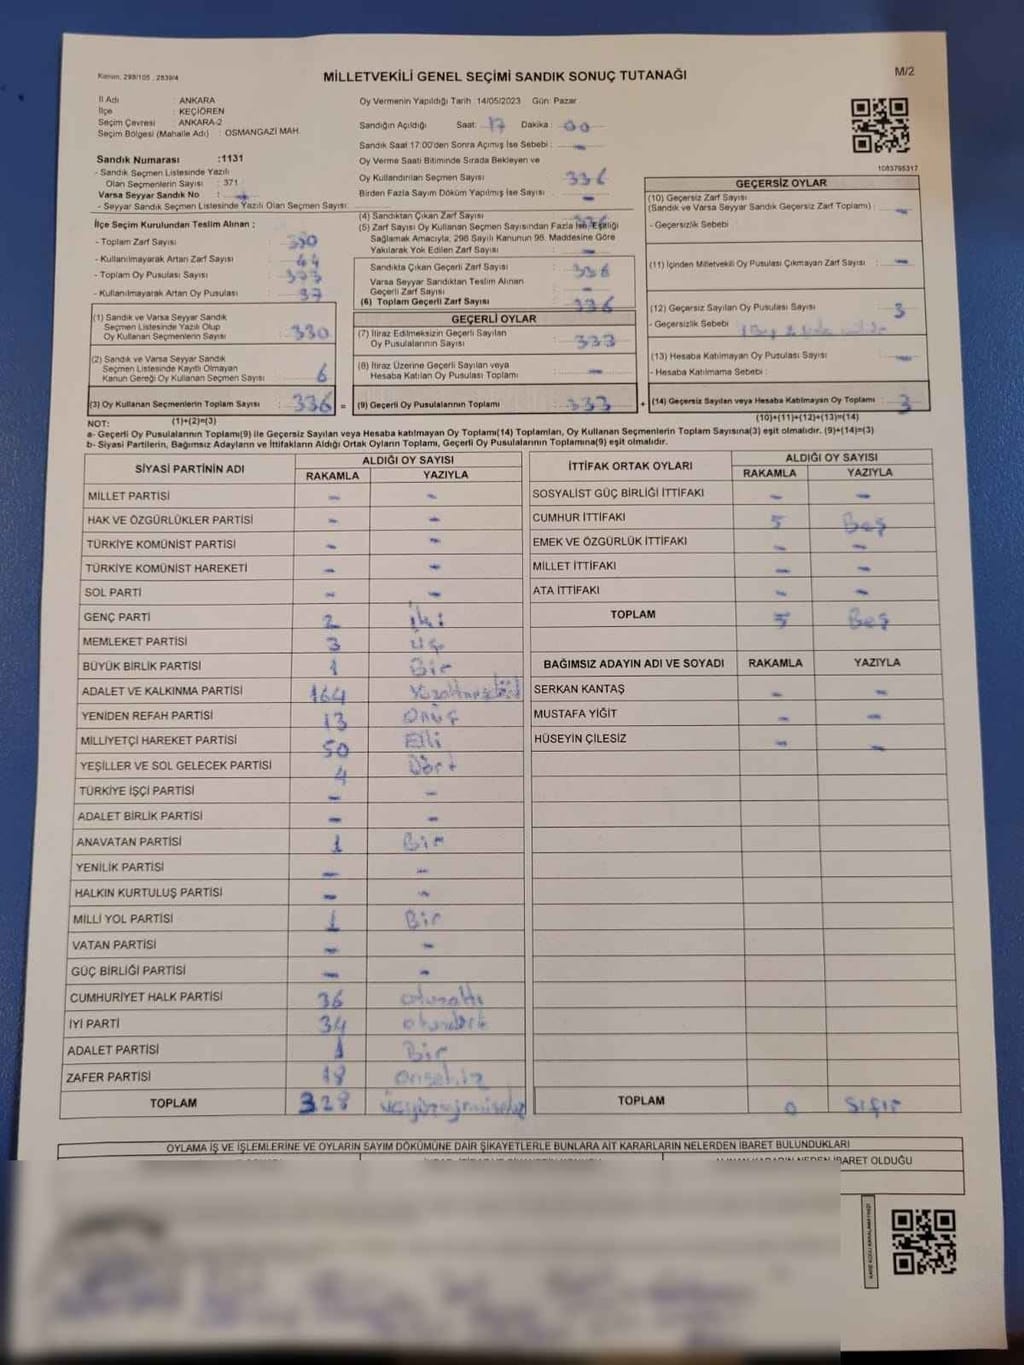 Kanun, 298/105 , 2839/4
MİLLETVEKİLİ GENEL SEÇİMİ SANDIK SONUÇ TUTANAĞI
M/2
İl Adı : ANKARA
İlçe : KEÇİÖREN
Seçim Çevresi : ANKARA-2
Seçim Bölgesi (Mahalle Adı) : OSMANGAZİ MAH.
Oy Vermenin Yapıldığı Tarih :14/05/2023 Gün: Pazar
Sandığın Açıldığı Saat: 17 Dakika : 00
Sandık Saat 17:00'den Sonra Açılmış İse Sebebi : -
Oy Verme Saati Bitiminde Sırada Bekleyen ve
Oy Kullandırılan Seçmen Sayısı 336
Birden Fazla Sayım Döküm Yapılmış İse Sayısı : -
1083795317
Sandık Numarası :1131
- Sandık Seçmen Listesinde Yazılı
Olan Seçmenlerin Sayısı : 371
Varsa Seyyar Sandık No : -
- Seyyar Sandık Seçmen Listesinde Yazılı Olan Seçmen Sayısı:
İlçe Seçim Kurulundan Teslim Alınan ;
- Toplam Zarf Sayısı : 380
- Kullanılmayarak Artan Zarf Sayısı : 44
- Toplam Oy Pusulası Sayısı : 373
- Kullanılmayarak Artan Oy Pusulası : 37
(1) Sandık ve Varsa Seyyar Sandık
Seçmen Listesinde Yazılı Olup
Oy Kullanan Seçmenlerin Sayısı : 330
(2) Sandık ve Varsa Seyyar Sandık
Seçmen Listesinde Kayıtlı Olmayan
Kanun Gereği Oy Kullanan Seçmen Sayısı : 6
(3) Oy Kullanan Seçmenlerin Toplam Sayısı : 336 =
(1)+(2)=(3)
(4) Sandıktan Çıkan Zarf Sayısı : 336
(5) Zarf Sayısı Oy Kullanan Seçmen Sayısından Fazla İse, Eşitliği
Sağlamak Amacıyla, 298 Sayılı Kanunun 98. Maddesine Göre
Yakılarak Yok Edilen Zarf Sayısı : -
Sandıkta Çıkan Geçerli Zarf Sayısı : 336
Varsa Seyyar Sandıktan Teslim Alınan
Geçerli Zarf Sayısı : -
(6) Toplam Geçerli Zarf Sayısı : 336
GEÇERLİ OYLAR
(7) İtiraz Edilmeksizin Geçerli Sayılan
Oy Pusulalarının Sayısı : 333
(8) İtiraz Üzerine Geçerli Sayılan veya
Hesaba Katılan Oy Pusulası Toplamı : -
(9) Geçerli Oy Pusulalarının Toplamı : 333 +
GEÇERSİZ OYLAR
(10) Geçersiz Zarf Sayısı
(Sandık ve Varsa Seyyar Sandık Geçersiz Zarf Toplamı) : -
- Geçersizlik Sebebi :
(11) İçinden Milletvekili Oy Pusulası Çıkmayan Zarf Sayısı : -
(12) Geçersiz Sayılan Oy Pusulası Sayısı : 3
- Geçersizlik Sebebi :
(13) Hesaba Katılmayan Oy Pusulası Sayısı : -
- Hesaba Katılmama Sebebi :
(14) Geçersiz Sayılan veya Hesaba Katılmayan Oy Toplamı : 3
(10)+(11)+(12)+(13)=(14)
NOT:
a- Geçerli Oy Pusulalarının Toplamı(9) ile Geçersiz Sayılan veya Hesaba katılmayan Oy Toplamı(14) Toplamları, Oy Kullanan Seçmenlerin Toplam Sayısına(3) eşit olmalıdır. (9)+(14)=(3)
b- Siyasi Partilerin, Bağımsız Adayların ve İttifakların Aldığı Ortak Oyların Toplamı, Geçerli Oy Pusulalarının Toplamına(9) eşit olmalıdır.
SİYASİ PARTİNİN ADI ALDIĞI OY SAYISI
RAKAMLA YAZIYLA
MİLLET PARTİSİ - -
HAK VE ÖZGÜRLÜKLER PARTİSİ - -
TÜRKİYE KOMÜNİST PARTİSİ - -
TÜRKİYE KOMÜNİST HAREKETİ - -
SOL PARTİ - -
GENÇ PARTİ 2 İki
MEMLEKET PARTİSİ 3 Üç
BÜYÜK BİRLİK PARTİSİ 1 Bir
ADALET VE KALKINMA PARTİSİ 164 Yüzaltmışdört
YENİDEN REFAH PARTİSİ 13 Onüç
MİLLİYETÇİ HAREKET PARTİSİ 50 Elli
YEŞİLLER VE SOL GELECEK PARTİSİ 4 Dört
TÜRKİYE İŞÇİ PARTİSİ - -
ADALET BİRLİK PARTİSİ - -
ANAVATAN PARTİSİ 1 Bir
YENİLİK PARTİSİ - -
HALKIN KURTULUŞ PARTİSİ - -
MİLLİ YOL PARTİSİ 1 Bir
VATAN PARTİSİ - -
GÜÇ BİRLİĞİ PARTİSİ - -
CUMHURİYET HALK PARTİSİ 36 otuzaltı
İYİ PARTİ 34 otuzdört
ADALET PARTİSİ 1 Bir
ZAFER PARTİSİ 18 onsekiz
TOPLAM 328 üçyüzyirmisekiz
İTTİFAK ORTAK OYLARI ALDIĞI OY SAYISI
RAKAMLA YAZIYLA
SOSYALİST GÜÇ BİRLİĞİ İTTİFAKI - -
CUMHUR İTTİFAKI 5 Beş
EMEK VE ÖZGÜRLÜK İTTİFAKI - -
MİLLET İTTİFAKI - -
ATA İTTİFAKI - -
TOPLAM 5 Beş
BAĞIMSIZ ADAYIN ADI VE SOYADI RAKAMLA YAZIYLA
SERKAN KANTAŞ - -
MUSTAFA YİĞİT - -
HÜSEYİN ÇİLESİZ - -
TOPLAM 0 Sıfır
OYLAMA İŞ VE İŞLEMLERİNE VE OYLARIN SAYIM DÖKÜMÜNE DAİR ŞİKAYETLERLE BUNLARA AİT KARARLARIN NELERDEN İBARET BULUNDUKLARI
İBARET OLDUĞU